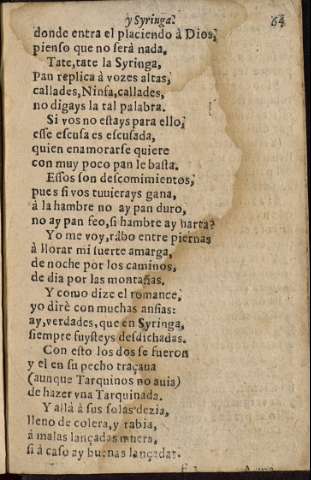 y Syringa. 64
donde entra el placiendo à Dios,
pienso que no serà nada.
Tate, tate la Syringa,
Pan replica à vozes altas,
callades, Ninfa, callades,
no digays la tal palabra.
Si vos no estays para ello,
esse escusa es escusada,
quien enamorarse quiere
con muy poco pan le basta.
Essos son descomimientos,
pues si vos tuuierays gana,
à la hambre no ay pan duro,
no ay pan feo, si hambre ay harta?
Yo me voy, rábo entre piernas
à llorar mi suerte amarga,
de noche por los caminos,
de dia por las montañas.
Y como dize el romance,
yo dirè con muchas ansias:
ay, verdades, que en Syringa,
siempre fuysteys desdichadas.
Con esto los dos se fueron
y el en su pecho traçaua
(aunque Tarquinos no auia)
de hazer vna Tarquinada.
Y allà à sus solas dezia,
lleno de colera, y rabia,
à malas lançadas muera,
si à caso ay buenas lançadas.